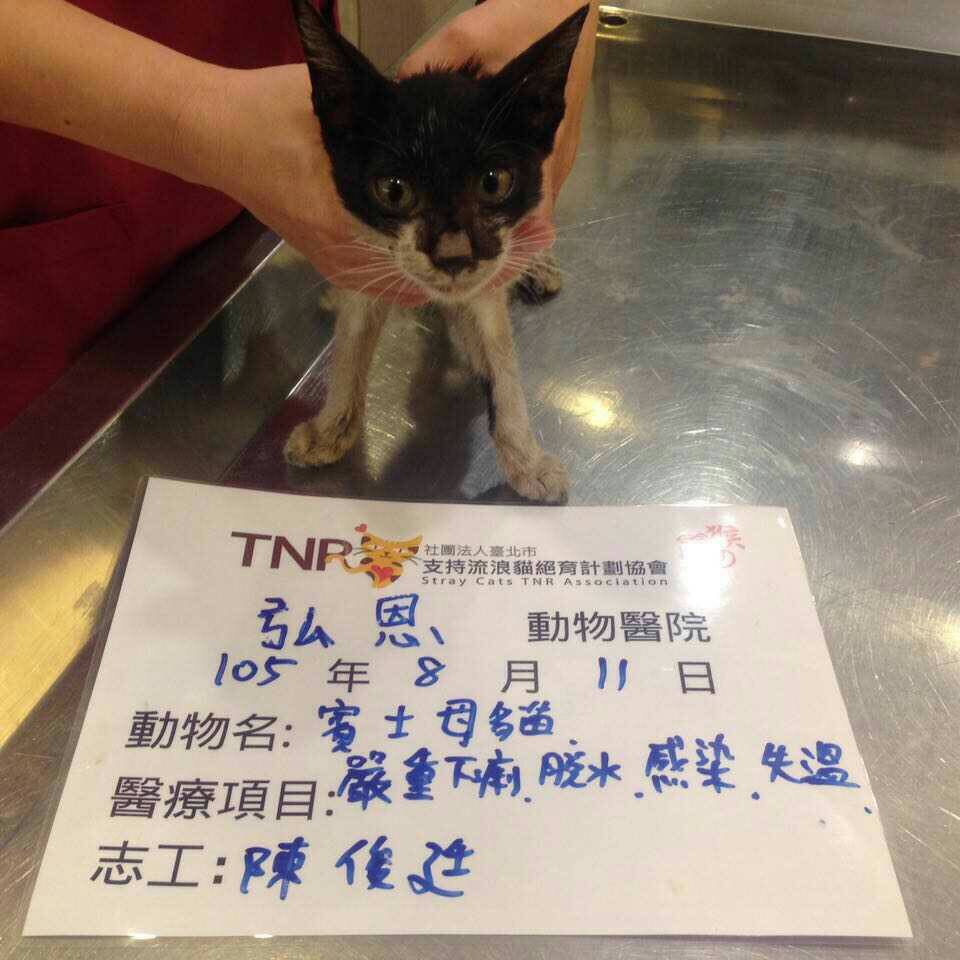 TNR 社團法人臺北市
支持流浪貓絕育計劃協會
Stray Cats TNR Association
弘恩 動物醫院
105 年 8 月 11 日
動物名: 賓士母貓
醫療項目: 嚴重下痢、脫水、感染、失溫
志工: 陳俊廷